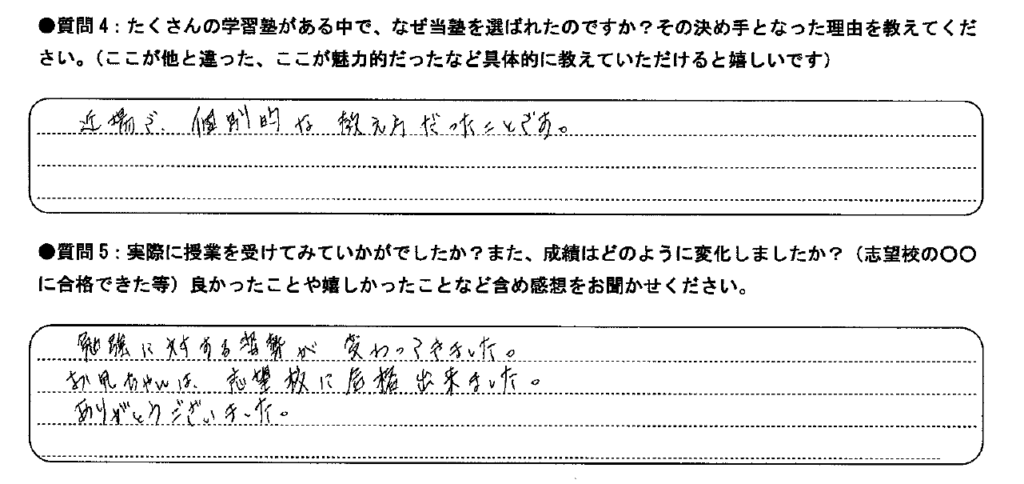 ●質問4：たくさんの学習塾がある中で、なぜ当塾を選ばれたのですか？その決め手となった理由を教えてくだ
さい。（ここが他と違った、ここが魅力的だったなど具体的に教えていただけると嬉しいです）
近場で、個別的な教え方だったことです。
●質問5：実際に授業を受けてみていかがでしたか？また、成績はどのように変化しましたか？（志望校の〇〇
に合格できた等）良かったことや嬉しかったことなど含め感想をお聞かせください。
勉強に対する姿勢が変わってきました。
お兄ちゃんは、志望校に合格出来ました。
ありがとうございました。